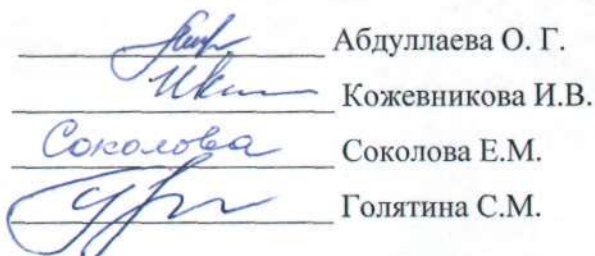 Абдуллаева О. Г.
Кожевникова И.В.
Соколова Соколова Е.М.
Голятина С.М.